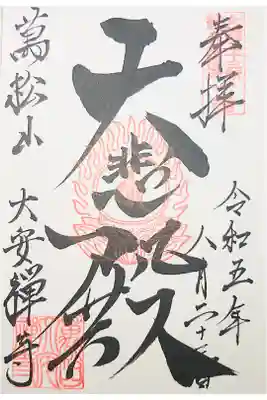 奉拝
令和五年
八月
大悲殿
萬松山
大安禅寺